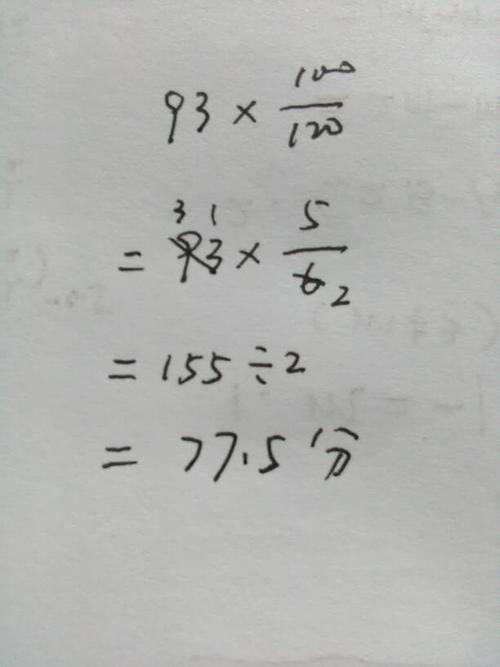 93 × 100/120
= 93 31 × 5/6 2
= 155 ÷ 2
= 77.5分